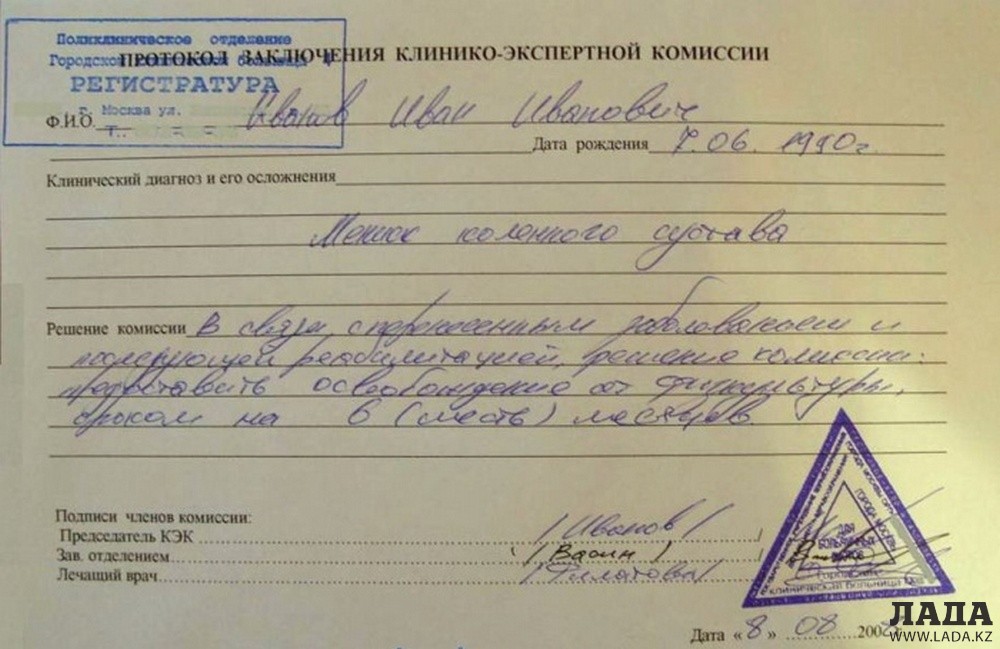 Поликлиническое отделение
Городской больницы
РЕГИСТРАТУРА
г. Москва ул.
ПРОТОКОЛ ЗАКЛЮЧЕНИЯ КЛИНИКО-ЭКСПЕРТНОЙ КОМИССИИ
Ф.И.О. Иванов Иван Иванович
Дата рождения 7.06. 1990г.
Клинический диагноз и его осложнения
Мениск коленного сустава
Решение комиссии В связи с перенесенным заболеванием и
последующей реабилитацией, решение комиссии:
предоставить освобождение от физкультуры,
сроком на 6 (шесть) месяцев.
Подписи членов комиссии:
Председатель КЭК /Иванов/
Зав. отделением (Васин)
Лечащий врач /Филатова/
ГОРОДА МОСКВЫ
ДЛЯ
БОЛЬНИЧНЫХ
ЛИСТКОВ
Городская
клиническая больница
Дата «8» 08 2008
ЛАДА
WWW.LADA.KZ